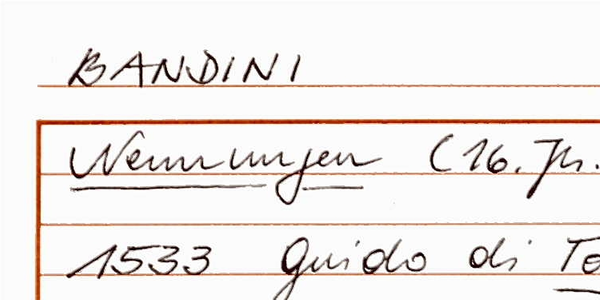 BANDINI
Nennungen (16. Jh.
1533 Guido di